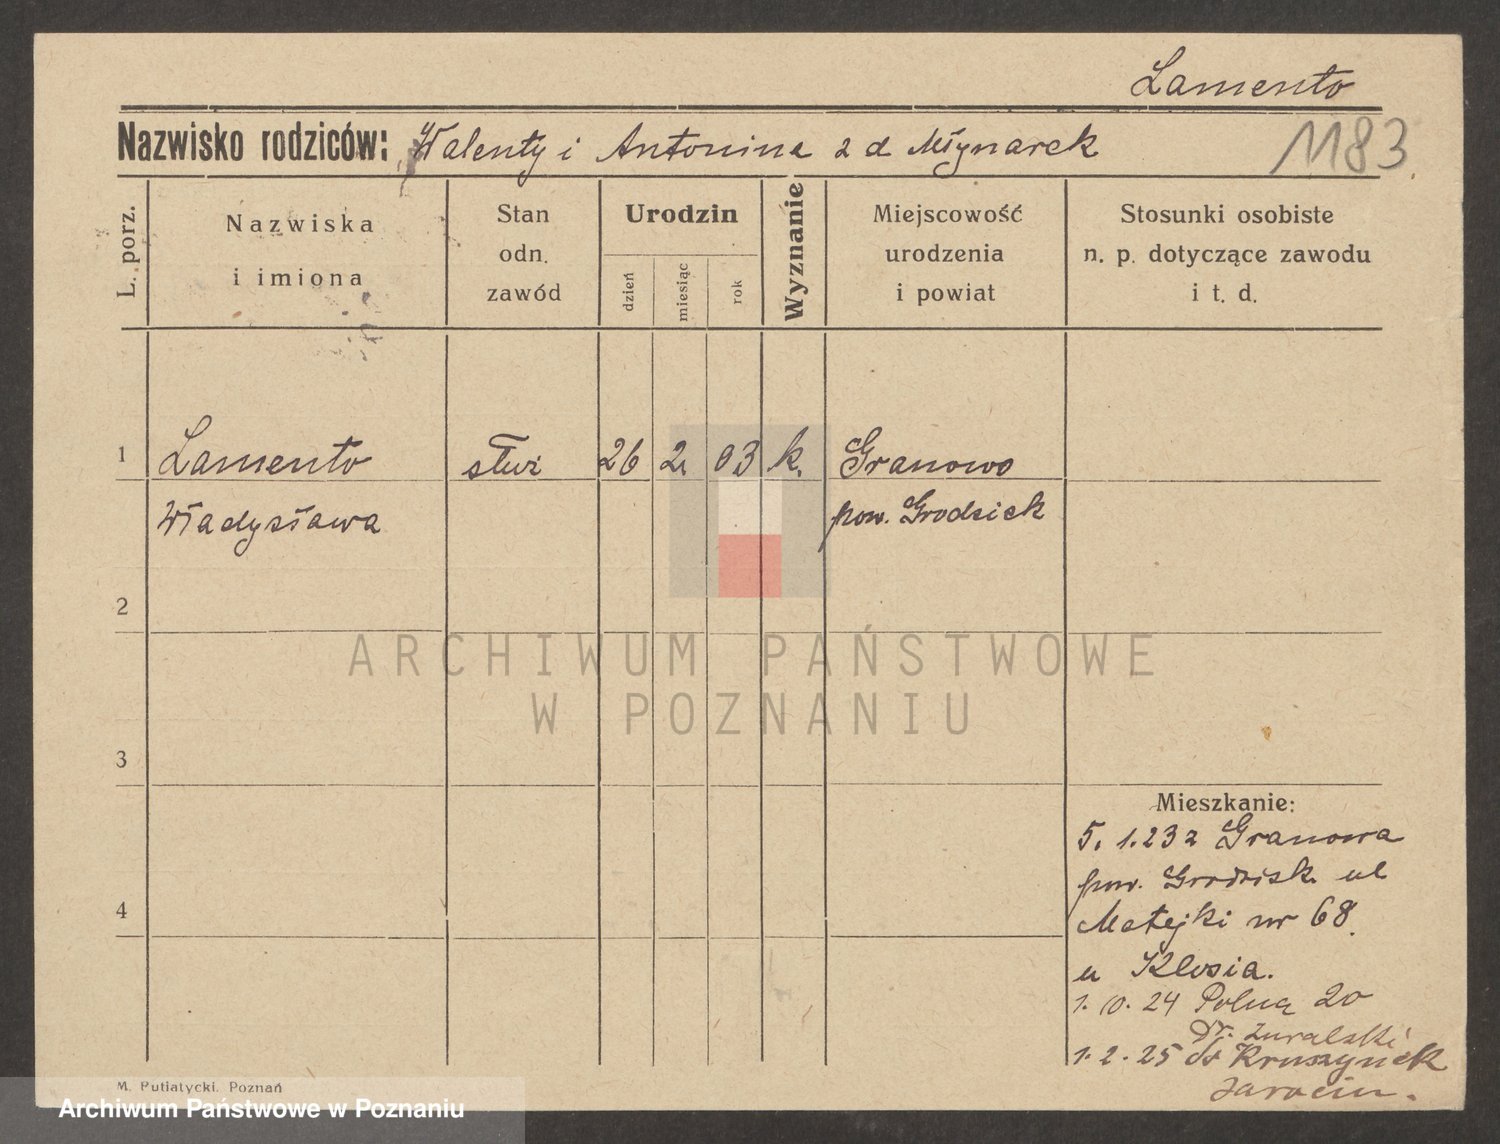 Lamento
Nazwisko rodziców: Walenty i Antonina z d Młynarek
1183
L. porz.
Nazwiska
i imiona
Stan
odn.
zawód
Urodzin
dzień
miesiąc
rok
Wyznanie
Miejscowość
urodzenia
i powiat
Stosunki osobiste
n. p. dotyczące zawodu
i t. d.
1 Lamento służ 26 2. 03 k. Granowo
Władysława pow. Grodzisk
2
3
4
ARCHIWUM PAŃSTWOWE
W POZNANIU
Mieszkanie:
5. 1.23 z Granowa
pow. Grodzisk ul
Matejki nr 68.
u Klosia.
1. 10. 24 Polną 20
Dr.
1. 2. 25 do Kruszynek
Jarocin.
M. Putiatycki, Poznań
Archiwum Państwowe w Poznaniu